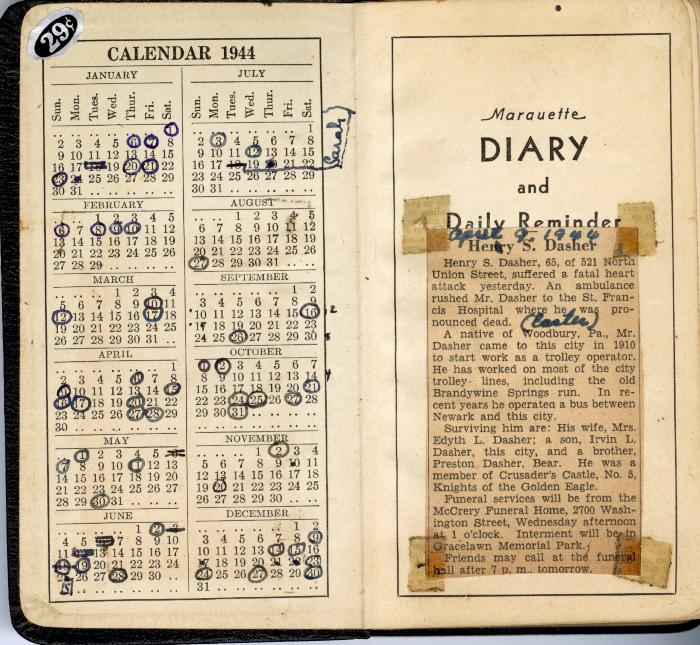 29¢
CALENDAR 1944
JANUARY
Sun. Mon. Tues. Wed. Thur. Fri. Sat.
.. .. .. .. .. .. 1
2 3 4 5 6 7 8
9 10 11 12 13 14 15
16 17 18 19 20 21 22
23 24 25 26 27 28 29
30 31 .. .. .. .. ..
FEBRUARY
.. .. 1 2 3 4 5
6 7 8 9 10 11 12
13 14 15 16 17 18 19
20 21 22 23 24 25 26
27 28 29 .. .. .. ..
MARCH
.. .. .. 1 2 3 4
5 6 7 8 9 10 11
12 13 14 15 16 17 18
19 20 21 22 23 24 25
26 27 28 29 30 31 ..
APRIL
.. .. .. .. .. .. 1
2 3 4 5 6 7 8
9 10 11 12 13 14 15
16 17 18 19 20 21 22
23 24 25 26 27 28 29
30 .. .. .. .. .. ..
MAY
.. 1 2 3 4 5 6
7 8 9 10 11 12 13
14 15 16 17 18 19 20
21 22 23 24 25 26 27
28 29 30 31 .. .. ..
JUNE
.. .. .. .. 1 2 3
4 5 6 7 8 9 10
11 12 13 14 15 16 17
18 19 20 21 22 23 24
25 26 27 28 29 30 ..
JULY
Sun. Mon. Tues. Wed. Thur. Fri. Sat.
.. .. .. .. .. .. 1
2 3 4 5 6 7 8
9 10 11 12 13 14 15
16 17 18 19 20 21 22
23 24 25 26 27 28 29
30 31 .. .. .. .. ..
Sarah
AUGUST
.. .. 1 2 3 4 5
6 7 8 9 10 11 12
13 14 15 16 17 18 19
20 21 22 23 24 25 26
27 28 29 30 31 .. ..
SEPTEMBER
.. .. .. .. .. 1 2
3 4 5 6 7 8 9
10 11 12 13 14 15 16
17 18 19 20 21 22 23
24 25 26 27 28 29 30
OCTOBER
1 2 3 4 5 6 7
8 9 10 11 12 13 14
15 16 17 18 19 20 21
22 23 24 25 26 27 28
29 30 31 .. .. .. ..
NOVEMBER
.. .. .. 1 2 3 4
5 6 7 8 9 10 11
12 13 14 15 16 17 18
19 20 21 22 23 24 25
26 27 28 29 30 .. ..
DECEMBER
.. .. .. .. .. 1 2
3 4 5 6 7 8 9
10 11 12 13 14 15 16
17 18 19 20 21 22 23
24 25 26 27 28 29 30
31 .. .. .. .. .. ..
Marquette
DIARY
and
Daily Reminder
April 9, 1944
Henry S. Dasher
Henry S. Dasher, 65, of 521 North
Union Street, suffered a fatal heart
attack yesterday. An ambulance
rushed Mr. Dasher to the St. Fran-
cis Hospital where he was pro-
nounced dead. (Easter)
A native of Woodbury, Pa., Mr.
Dasher came to this city in 1910
to start work as a trolley operator.
He has worked on most of the city
trolley lines, including the old
Brandywine Springs run. In re-
cent years he operated a bus between
Newark and this city.
Surviving him are: His wife, Mrs.
Edyth L. Dasher; a son, Irvin L.
Dasher, this city, and a brother,
Preston Dasher, Bear. He was a
member of Crusader's Castle, No. 5,
Knights of the Golden Eagle.
Funeral services will be from the
McCrery Funeral Home, 2700 Wash-
ington Street, Wednesday afternoon
at 1 o'clock. Interment will be in
Gracelawn Memorial Park.
Friends may call at the funeral
hall after 7 p. m. tomorrow.